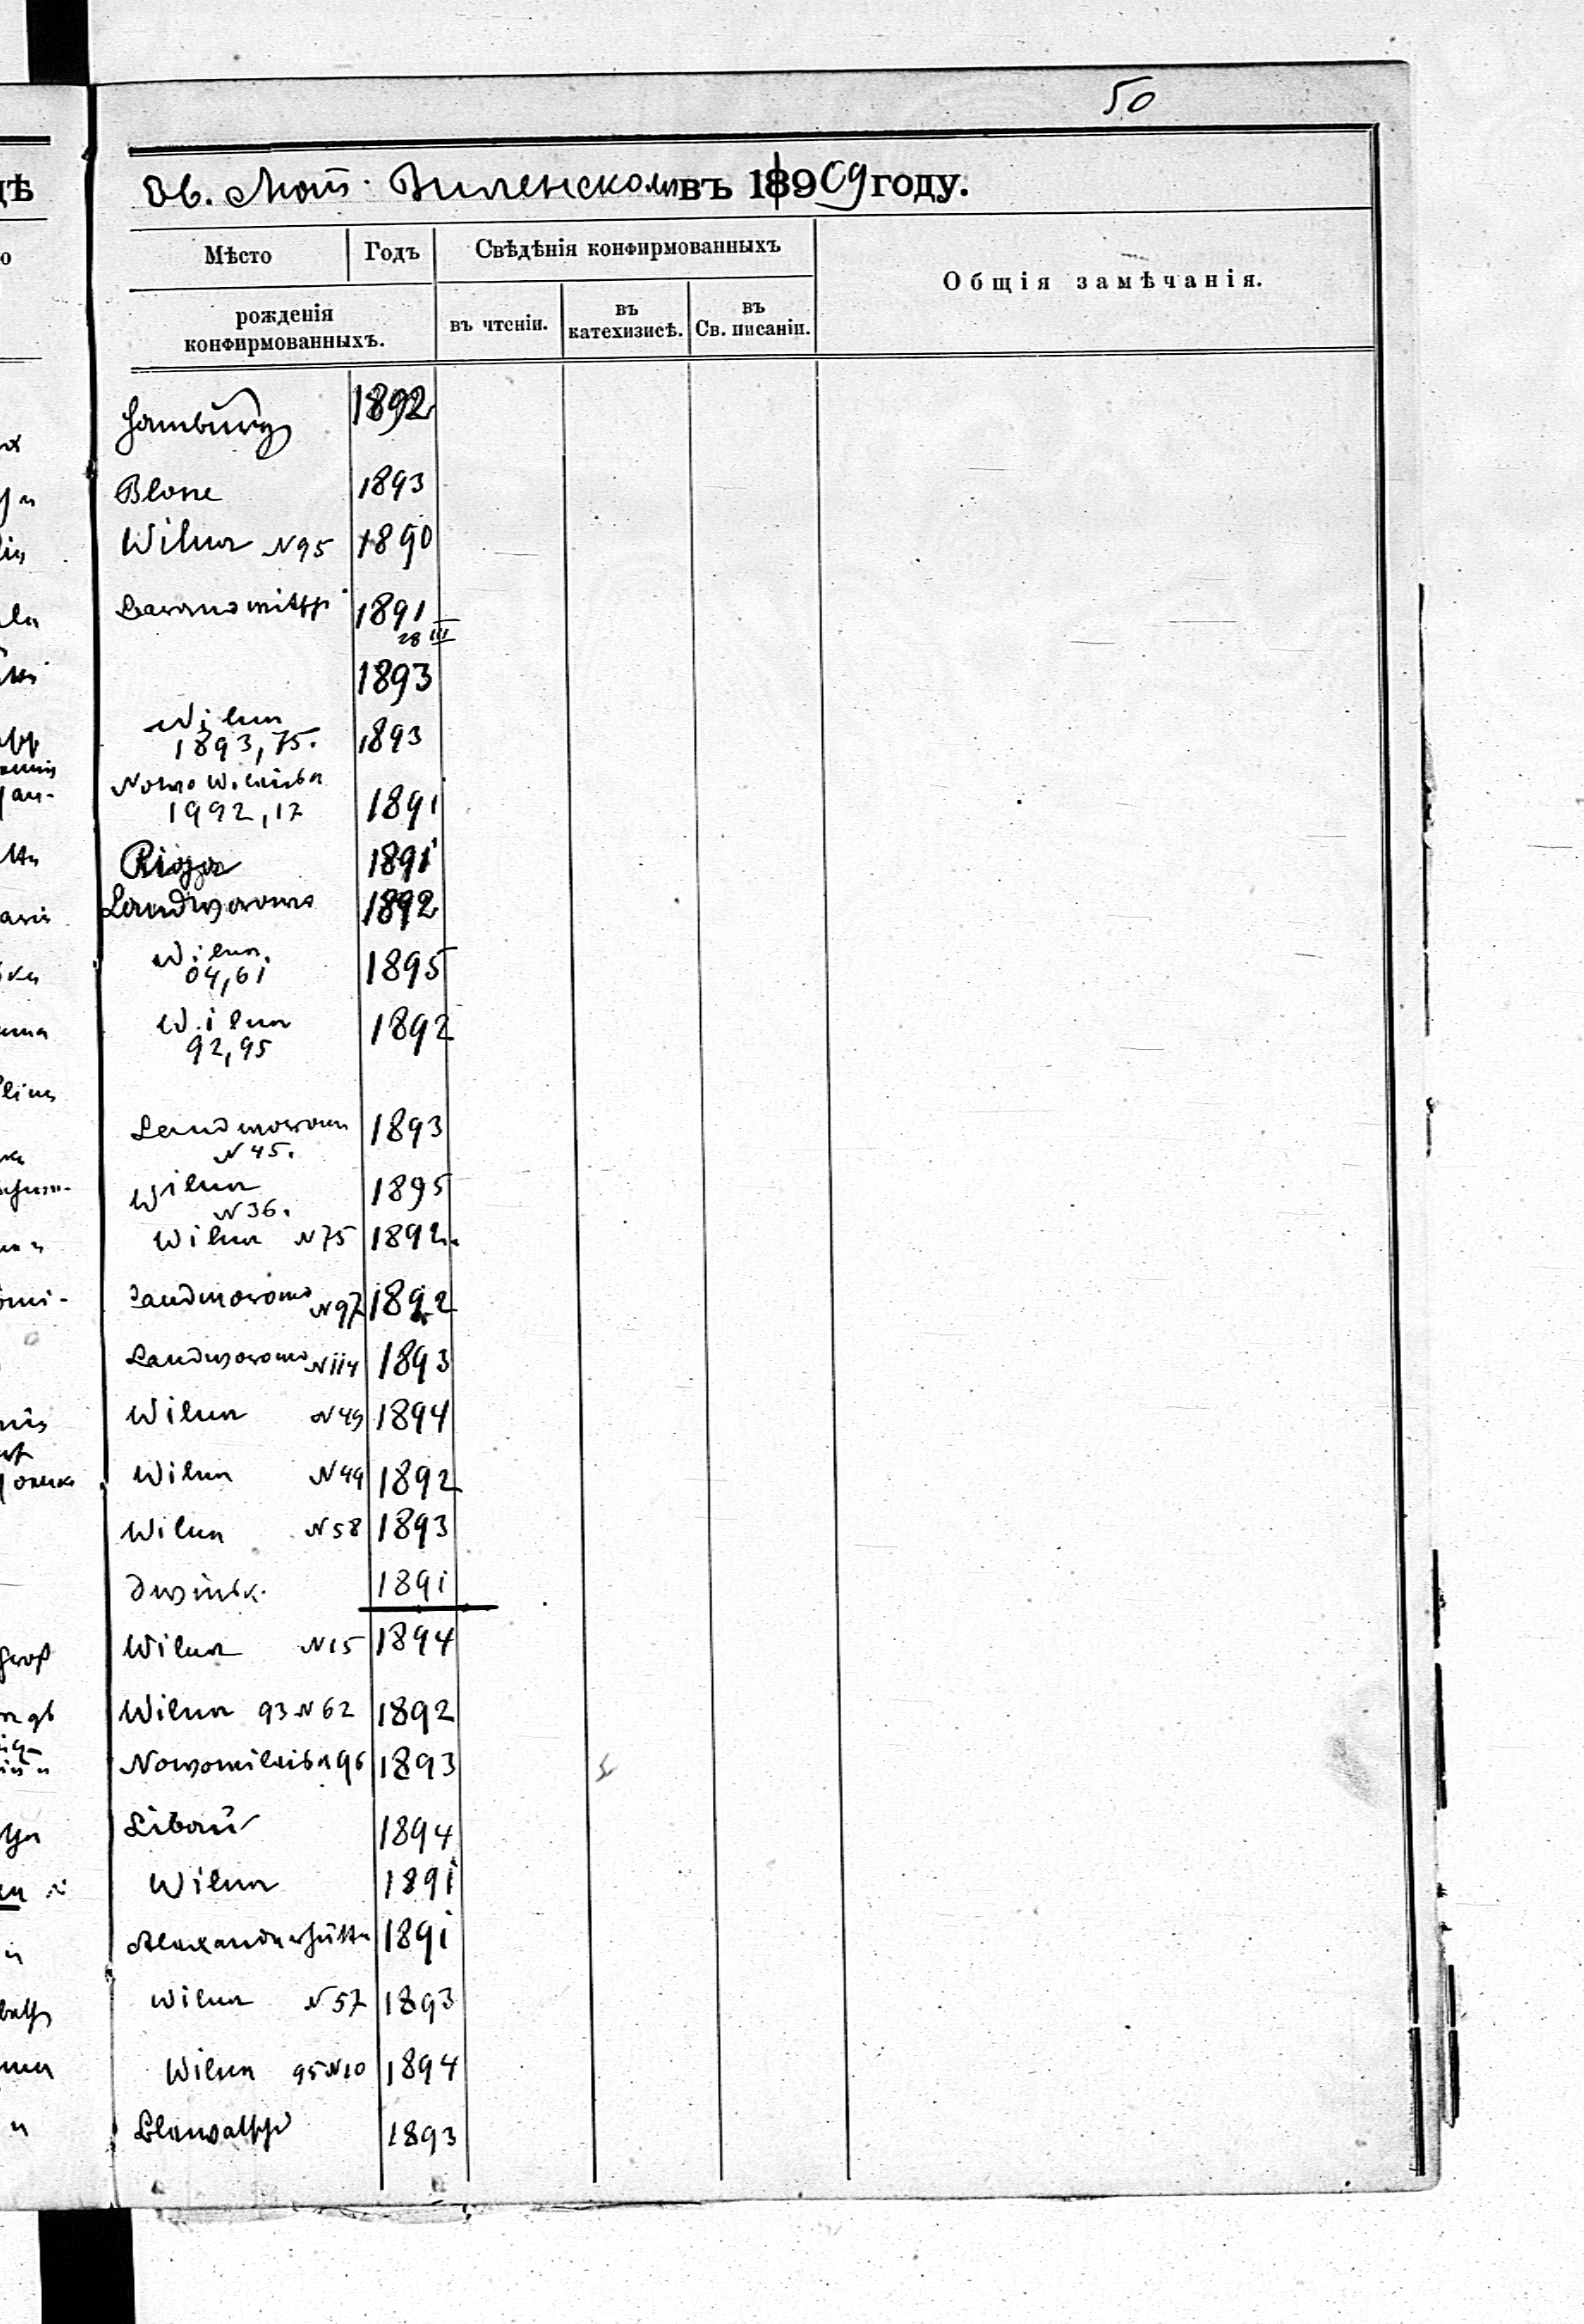 50
Ев. Лют. Виленском въ 1909 году.
Мѣсто Годъ Свѣдѣнія конфирмованныхъ Общія замѣчанія.
рожденія
конфирмованныхъ.
въ чтеніи. въ катехизисѣ. въ Св. писаніи.
Hamburg 1892
Blone 1893
Wilna N95 1890
1891
28 III
1893
Wilna
1893,75. 1893
Nowo Wileiska
1992,17 1891
Riga 1891
Landworowo 1892
Wilna.
04,61 1895
Wilna
92,95 1892
Landworowo 1893
N45.
Wilna 1895
N36.
Wilna N75 1892
Landworowo N97 1892
Landworowo N114 1893
Wilna N49 1894
Wilna N49 1892
Wilna N58 1893
Dwinsk. 1891
Wilna N15 1894
Wilna 93 N62 1892
Nowowileiska 96 1893
Libau 1894
Wilna 1891
Alexanderhütte 1891
Wilna N57 1893
Wilna 95 N10 1894
1893